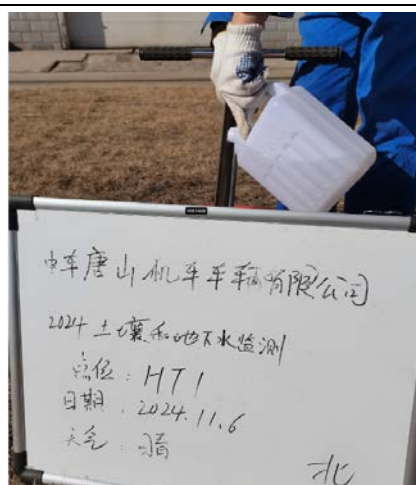 中车唐山机车车辆有限公司
2024土壤和地下水监测
点位：HT1
日期：2024.11.6
天气：晴
北